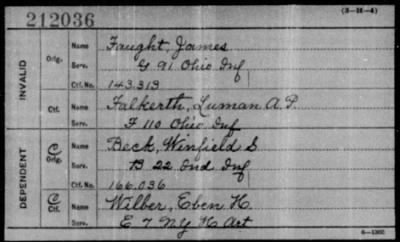 212036
(3-216-4)
INVALID
Orig. Name Faught, James
Serv. G 91 Ohio Inf
Ctf. No. 143.313
Ctf. Name Falkerth, Luman A P.
Serv. F 110 Ohio Inf
DEPENDENT
C Orig. Name Beck, Winfield S
Serv. B 22 Ind Inf
Ctf. No. 166,036
C Ctf. Name Wilber, Eben H.
Serv. E 7 NY H Art
6-1365